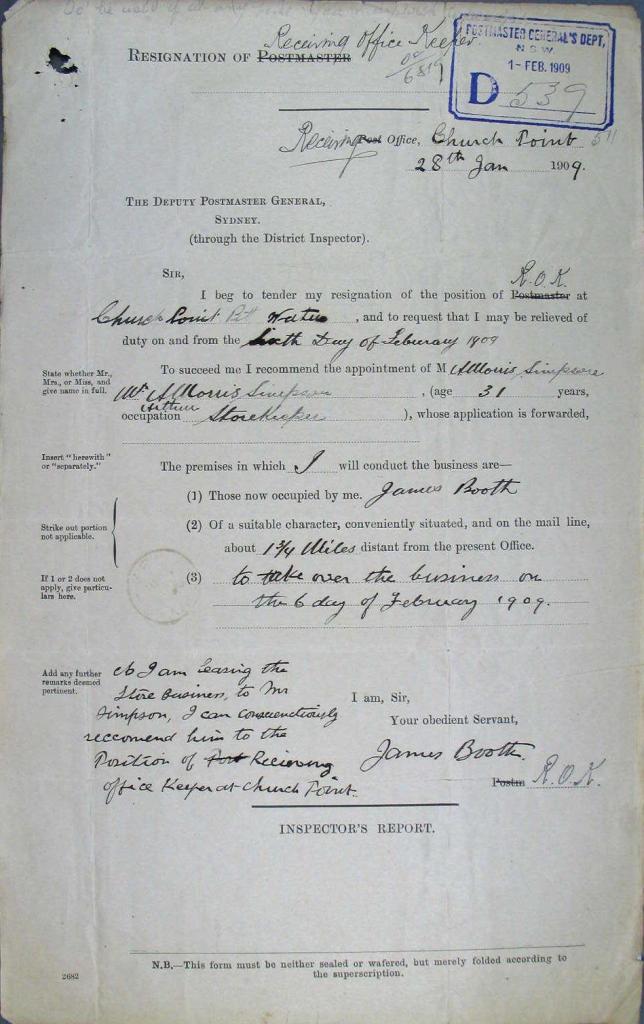 To be
Receiving Office Keeper
RESIGNATION OF POSTMASTER
POSTMASTER GENERAL'S DEPT,
N.S.W.
1-FEB.1909
D 539
Receiving Post Office, Church Point
28th Jan 1909.
THE DEPUTY POSTMASTER GENERAL,
SYDNEY.
(through the District Inspector).
SIR,
R.O.K.
I beg to tender my resignation of the position of Postmaster at
Church Point Pitt Water, and to request that I may be relieved of
duty on and from the sixth Day of Feburary 1909
State whether Mr., Mrs., or Miss, and give name in full.
To succeed me I recommend the appointment of M A Morris Simpson
Mr A Morris Simpson, (age 31 years,
Arthur
occupation Storekeeper ), whose application is forwarded,
Insert "herewith" or "separately."
The premises in which I will conduct the business are—
(1) Those now occupied by me. James Booth
Strike out portion not applicable.
(2) Of a suitable character, conveniently situated, and on the mail line,
about 1 3/4 Miles distant from the present Office.
If 1 or 2 does not apply, give particulars here.
(3) to take over the business on
the 6 day of February 1909.
Add any further remarks deemed pertinent.
I am leasing the
Store Business, to Mr
Simpson, I can conscienctiously
reccomend him to the
Position of Post Recieving
office Keeper at Church Point.
I am, Sir,
Your obedient Servant,
James Booth.
Postm R.O.K.
INSPECTOR'S REPORT.
N.B.—This form must be neither sealed or wafered, but merely folded according to
the superscription.
2682